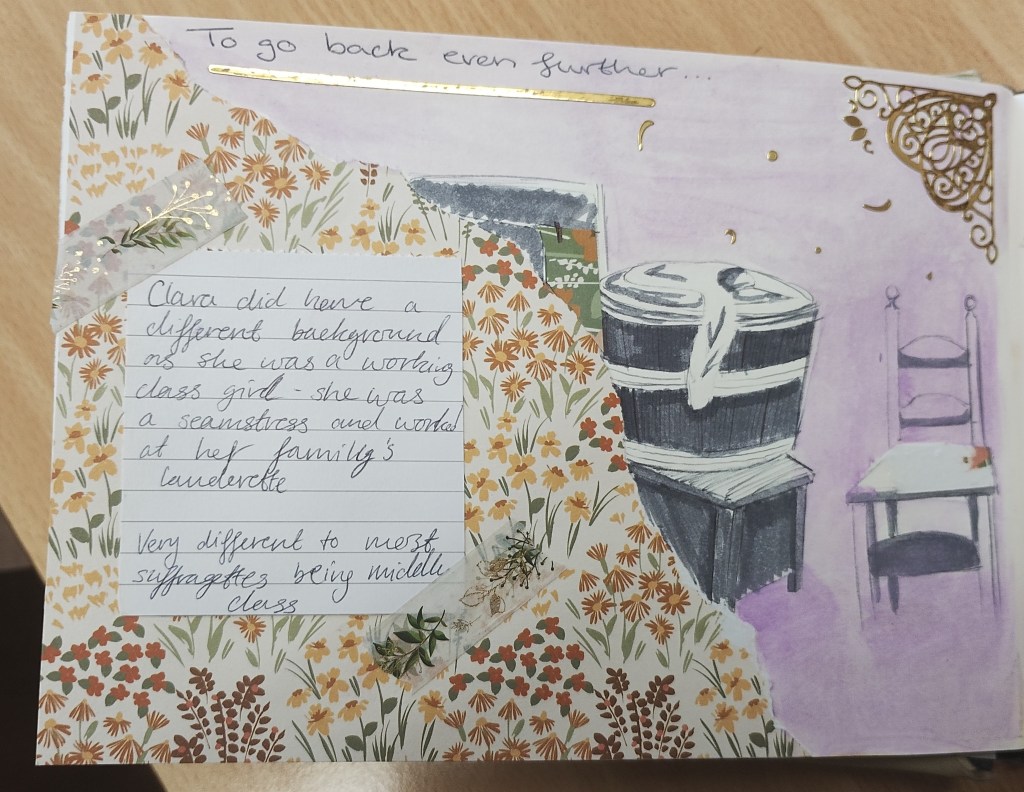 To go back even further...
Clara did have a
different background
as she was a working
class girl - she was
a seamstress and worked
at her family's
launderette
Very different to most
suffragettes being middle
class